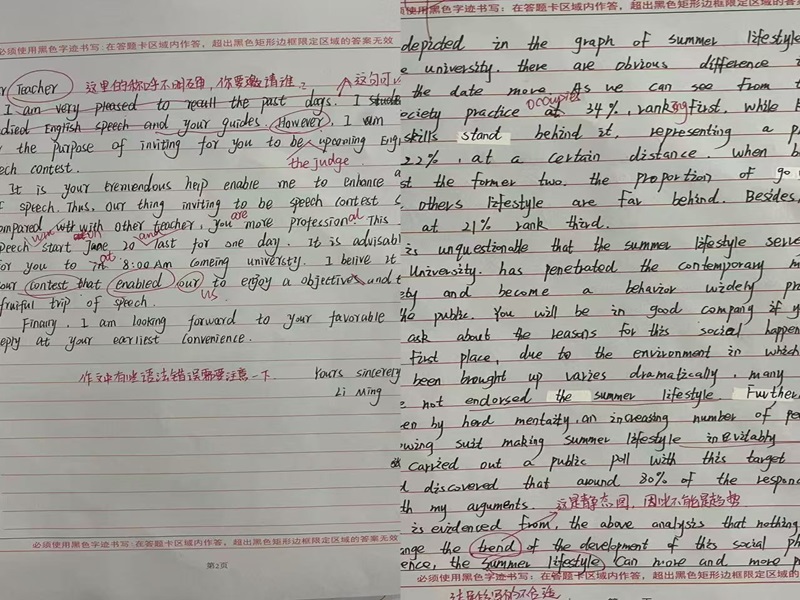 必须使用黑色字迹书写:在答题卡区域内作答,超出黑色矩形边框限定区域的答案无效
Teacher 这里的称呼不明确,你要邀请谁?
I am very pleased to recall the past days. I
died English speech and your guides. However, I
the purpose of inviting for you to be upcoming
the judge
ech contest.
It is your tremendous help enable me to enhance
speech. Thus, our thing inviting to be speech contest
ompared with other teacher, you are more professional. This
peech will start on June 20 and last for one day. It is advisab
for you to at 8:00 Am comeing universty. I belive it
our contest that enabled our to enjoy a objective and
us
fruiful trip of speech.
Finary, I am looking forward to your favorable
eply at your earliest convenience.
作文中有些语法错误需要注意一下
Yours sincerely
Li Ming
必须使用黑色字迹书写:在答题卡区域内作答,超出黑色矩形边框限定区域的答案无效
第2页
必须使用黑色字迹书写:在答题卡区域内作答,超出黑色矩形边框限定区域的答案无效
depicted in the graph of summer lifestyle
university. there are obvious difference
the date move. As we can see from
occupies
ociety practice at 34%, ranking first, while
skills stand behind it, representing a
22%, at a certain distance. When
the former two. the proportion of go
others lifestyle are far behind. Besides,
at 21% rank third.
is unquestionable that the summer lifestyle
University. has penetrated the contemporary
ety and become a behavior widely
the public. You will be in good company if
ask about the reasons for this social happen
first place, due to the environment in which
been brought up varies dramatically, many
not endorsed the summer lifestyle. Further
en by herd mentaity, an increasing number of
owing suit making summer lifestyle inevitably
carried out a public poll with this target
discovered that around 80% of the respon
th my arguments. 这是静态图,因此不能是趋势
is evidenced from, the above analysis that nothing
ange the trend of the development of this social
ence, the summer lifestyle can more and more
必须使用黑色字迹书写:在答题卡区域内作答,超出黑色矩形边框限定区域的答案